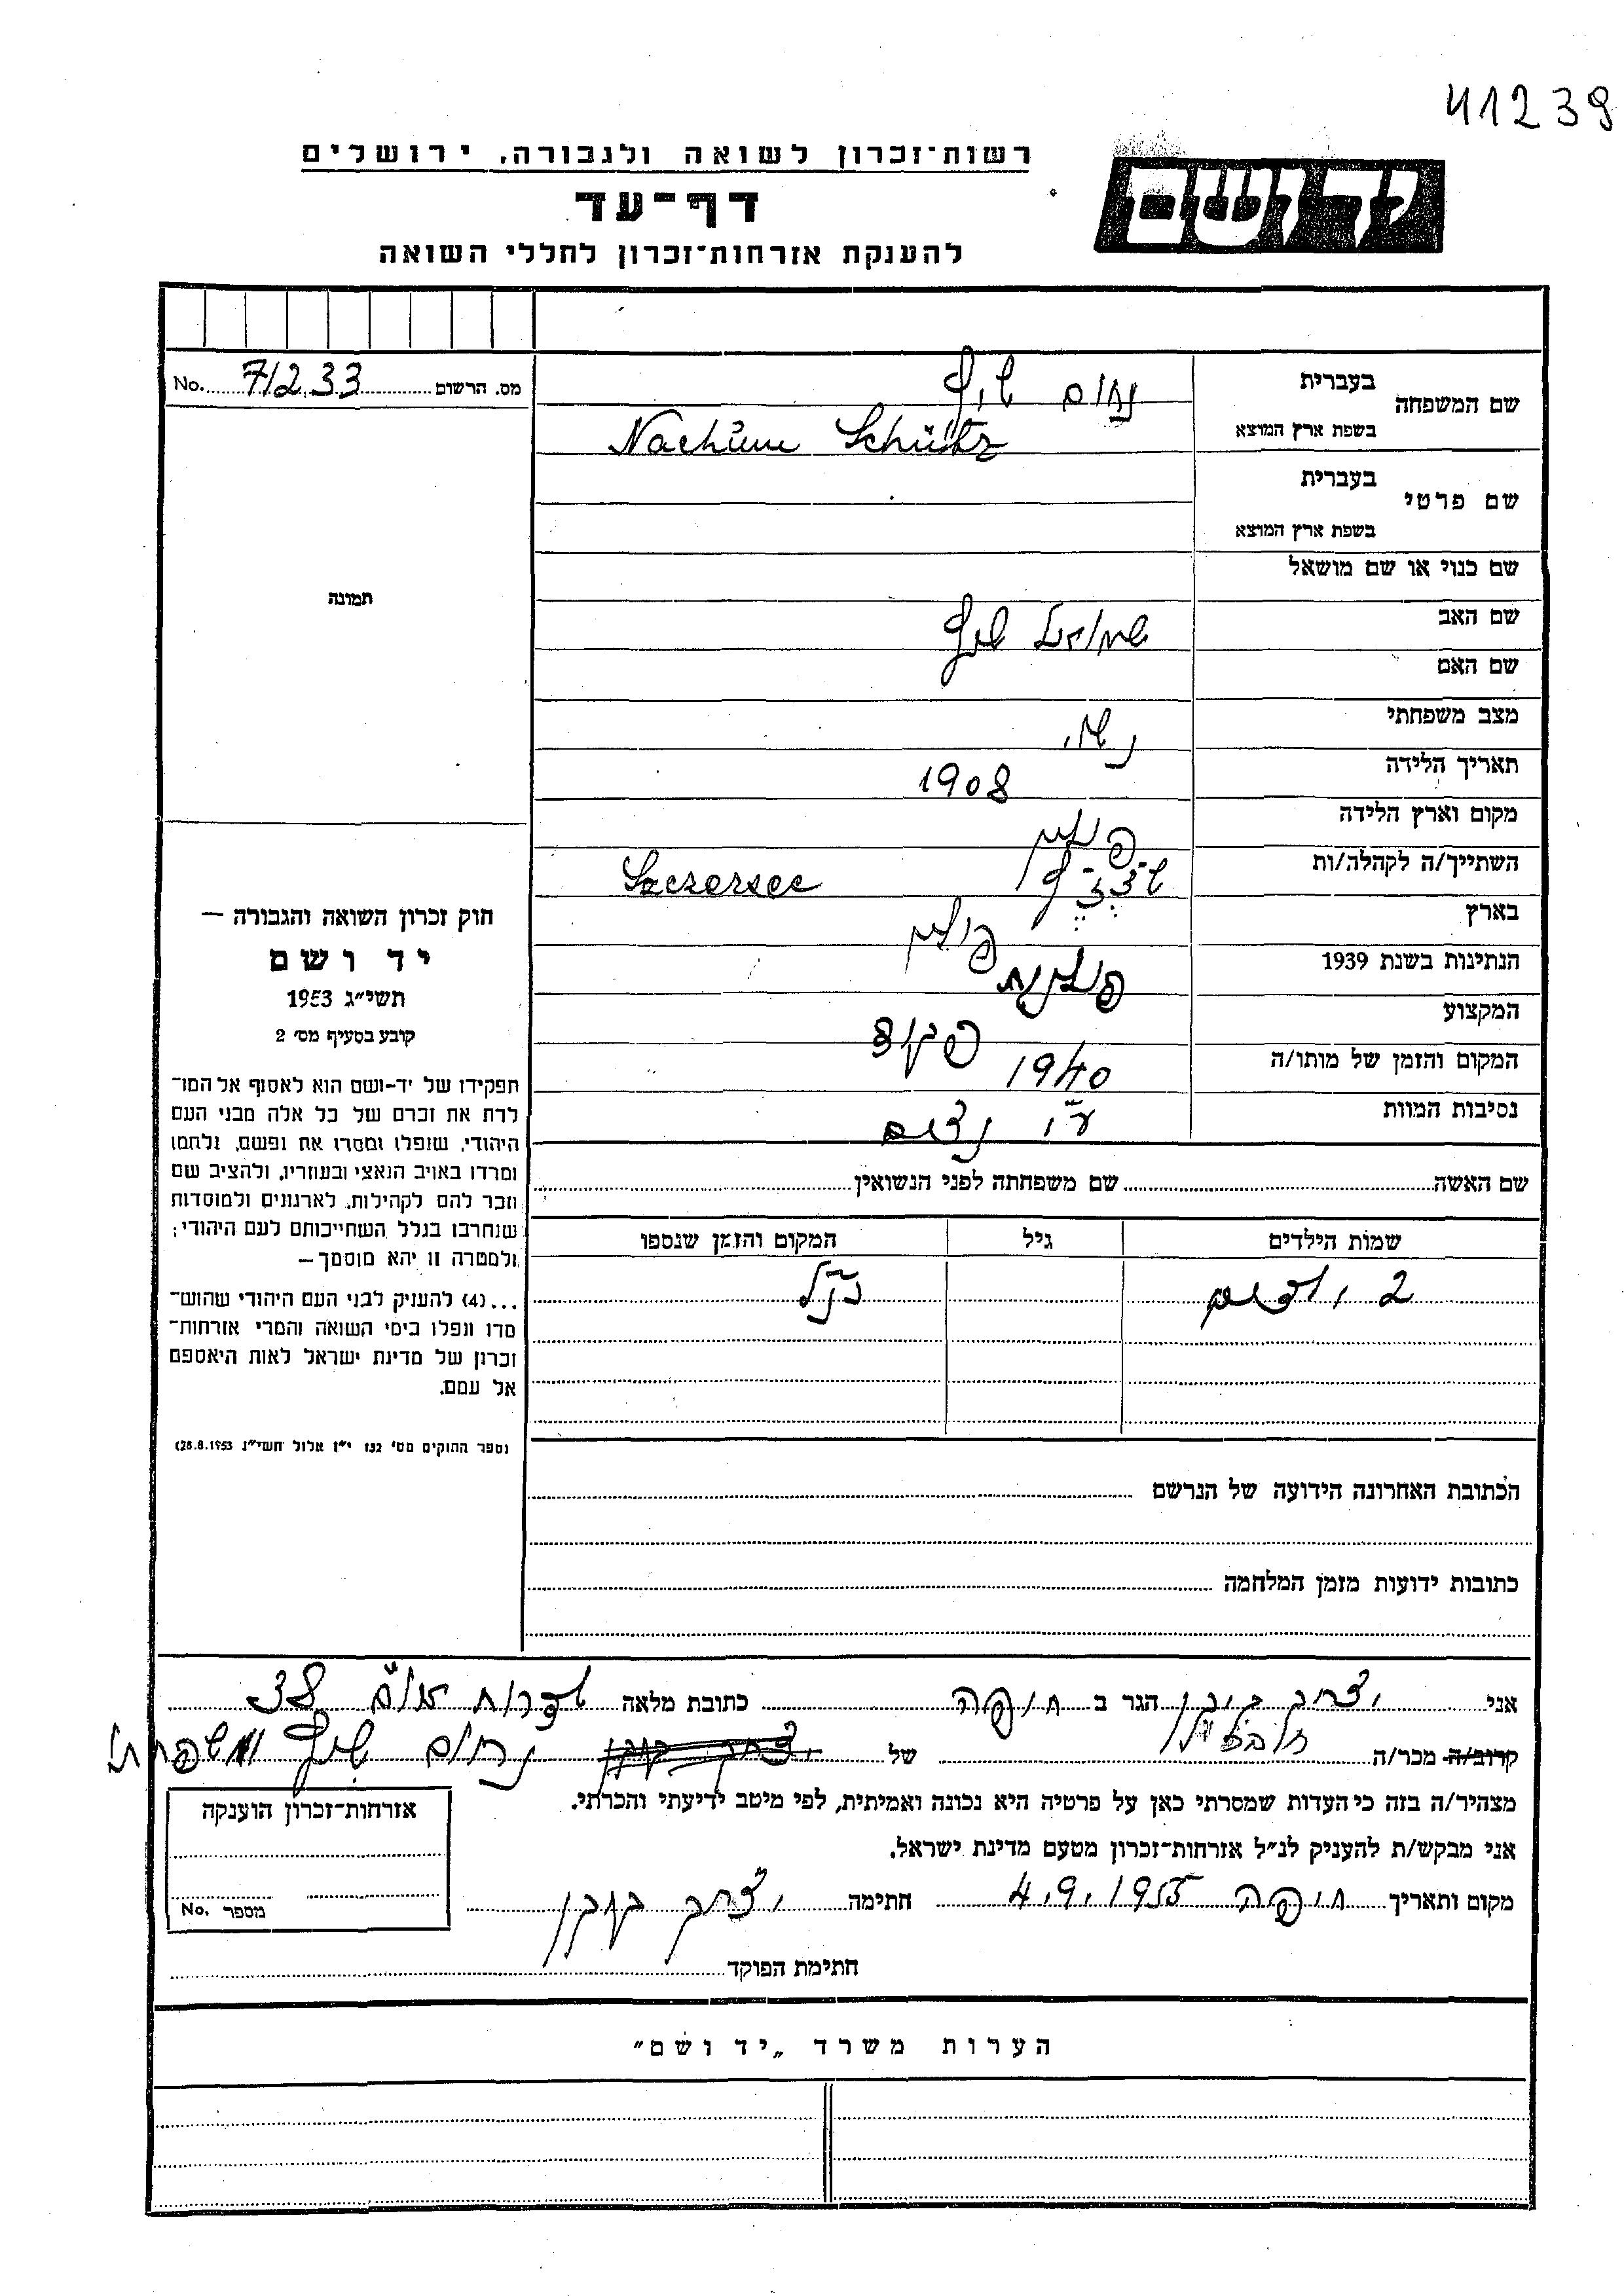 41239
רשות־זכרון לשואה ולגבורה, ירושלים
יד ושם
דף־עד
להענקת אזרחות־זכרון לחללי השואה
מס. הרשום 71233 No.
שם המשפחה
בעברית נחום שיץ
בשפת ארץ המוצא Nachŭm Schütz
שם פרטי
בעברית
בשפת ארץ המוצא
שם כנוי או שם מושאל
שם האב שמואל שיץ
שם האם
מצב משפחתי נשוי
תאריך הלידה 1908
מקום וארץ הלידה פולין
השתייך/ה לקהלה/ות Szczerzec
בארץ פולין
הנתינות בשנת 1939 פולנית
המקצוע פקיד
המקום והזמן של מותו/ה 1940
נסיבות המוות ע"י נצים
תמונה
חוק זכרון השואה והגבורה —
יד ושם
תשי״ג 1953
קובע בסעיף מס׳ 2
תפקידו של יד־ושם הוא לאסוף אל המו־
לדת את זכרם של כל אלה מבני העם
היהודי, שנפלו ומסרו את נפשם, נלחמו
ומרדו באויב הנאצי ובעוזריו, ולהציב שם
וזכר להם לקהילות, לארגונים ולמוסדות
שנחרבו בגלל השתייכותם לעם היהודי;
ולמטרה זו יהא מוסמך—
...(4) להעניק לבני העם היהודי שהוש־
מדו ונפלו בימי השואה והמרי אזרחות־
זכרון של מדינת ישראל לאות היאספם
אל עמם.
(ספר החוקים מס׳ 132 י״ז אלול תשי״ג 28.8.1953)
שם האשה שם משפחתה לפני הנשואין
שמות הילדים גיל המקום והזמן שנספו
2 ילדים כנ"ל
הכתובת האחרונה הידועה של הנרשם
כתובות ידועות מזמן המלחמה
אני יצחק הגר ב חיפה כתובת מלאה שדרות או"ם 38
קרוב/ה מכר/ה של נחום שיץ ומשפחתו
מצהיר/ה בזה כי העדות שמסרתי כאן על פרטיה היא נכונה ואמיתית, לפי מיטב ידיעתי והכרתי.
אני מבקש/ת להעניק לנ״ל אזרחות־זכרון מטעם מדינת ישראל.
מקום ותאריך חיפה 4.9.1955 חתימה יצחק
חתימת הפוקד
אזרחות־זכרון הוענקה
מספר No.
הערות משרד „יד ושם"